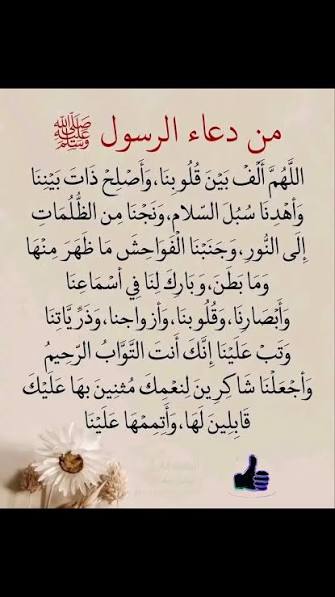 من دعاء الرسول ﷺ
اللَّهُمَّ أَلِّفْ بَيْنَ قُلُوبِنَا،وَأَصْلِحْ ذَاتَ بَيْنِنَا
وَأهْدِنَا سُبُلَ السّلام،وَنَجْنَا مِن الظُّلُمَاتِ
إِلَى النُّورِ،وَجَنِبْنَا الْفَوَاحِشَ مَا ظَهَرَ مِنْهَا
وَمَا بَطَنَ،وَبَارِكَ لِنَا فِي أسْمَاعِنَا
وَأَبْصَارِنَا،وَقُلُوبنَا،وَأزواجنا،وَذَرِيَّاتِنَا
وَتَبْ عَلَيْنَا إنَّكَ أنتَ التَّوَّابُ الرّحِيمُ
وَأجْعَلْنَا شاكِرِين لِنعْمِكَ مُثنِينَ بهَا عَلَيْكَ
قَابِلِينَ لَهَا،وَأتِمِمْهَا عَلَيْنَا